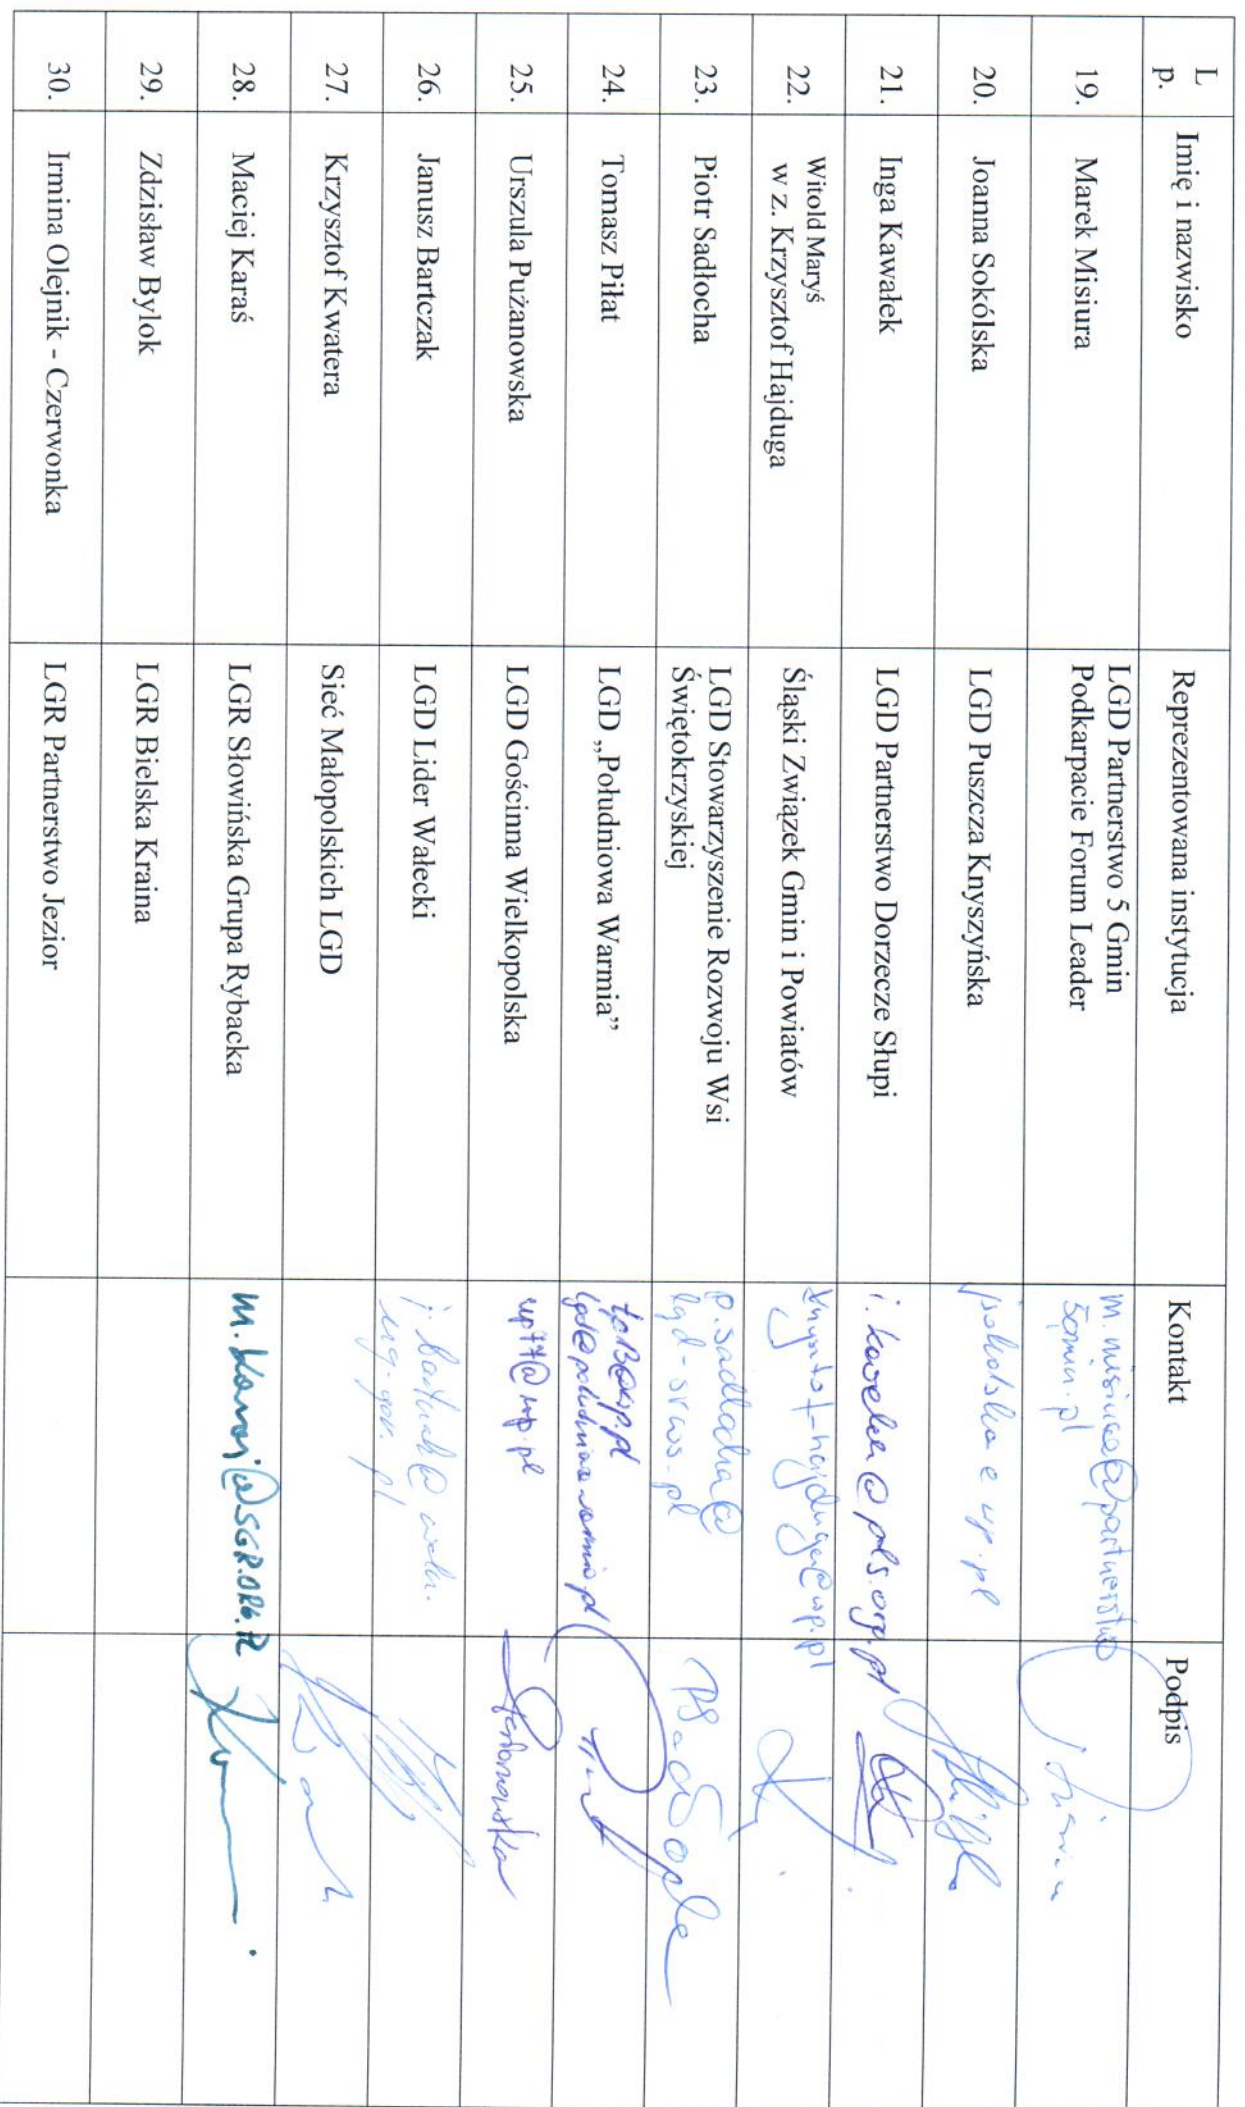 L
p.
Imię i nazwisko
Reprezentowana instytucja
Kontakt
Podpis
19.
Marek Misiura
LGD Partnerstwo 5 Gmin
Podkarpacie Forum Leader
m.misiura@partnerstwo
5gmin.pl
20.
Joanna Sokólska
LGD Puszcza Knyszyńska
21.
Inga Kawałek
LGD Partnerstwo Dorzecze Słupi
i.kawalek@pds.org.pl
22.
Witold Maryś
w z. Krzysztof Hajduga
Śląski Związek Gmin i Powiatów
krzysztof-hajduga@wp.pl
23.
Piotr Sadłocha
LGD Stowarzyszenie Rozwoju Wsi
Świętokrzyskiej
p.sadlocha@
lgd-srws.pl
24.
Tomasz Piłat
LGD „Południowa Warmia”
25.
Urszula Pużanowska
LGD Gościnna Wielkopolska
up77@wp.pl
26.
Janusz Bartczak
LGD Lider Wałecki
27.
Krzysztof Kwatera
Sieć Małopolskich LGD
28.
Maciej Karaś
LGR Słowińska Grupa Rybacka
m.karas@SGR.ORG.PL
29.
Zdzisław Bylok
LGR Bielska Kraina
30.
Irmina Olejnik - Czerwonka
LGR Partnerstwo Jezior